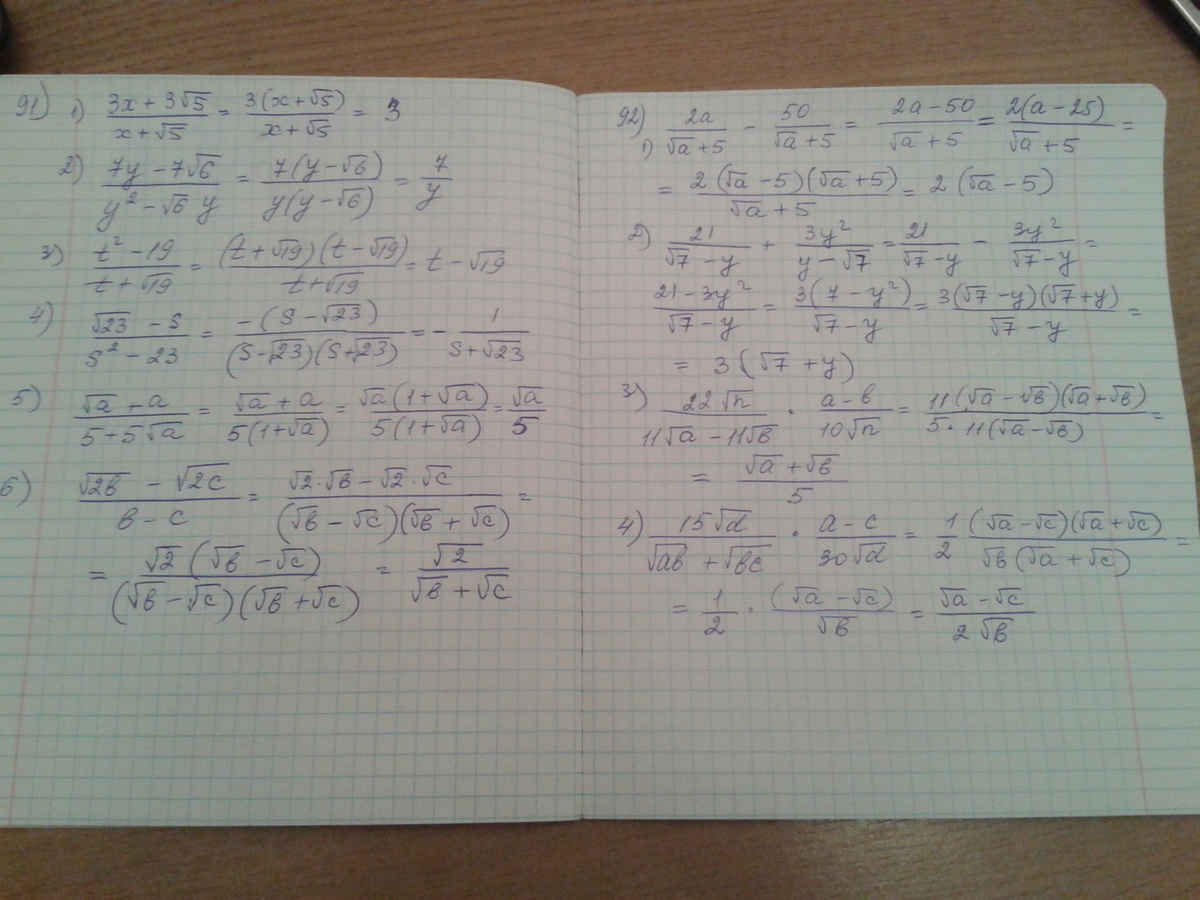 91) 1) (3x + 3√5)/(x + √5) = 3(x + √5)/(x + √5) = 3
2) (7y - 7√6)/(y² - √6 y) = 7(y - √6)/(y(y - √6)) = 7/y
3) (t² - 19)/(t + √19) = (t + √19)(t - √19)/(t + √19) = t - √19
4) (√23 - s)/(s² - 23) = -(s - √23)/((s - √23)(s + √23)) = - 1/(s + √23)
5) (√a + a)/(5 + 5√a) = (√a + a)/(5(1 + √a)) = √a(1 + √a)/(5(1 + √a)) = √a/5
6) (√2в - √2c)/(в - c) = (√2·√в - √2·√c)/((√в - √c)(√в + √c)) =
= √2(√в - √c)/((√в - √c)(√в + √c)) = √2/(√в + √c)
92) 1) 2a/(√a + 5) - 50/(√a + 5) = (2a - 50)/(√a + 5) = 2(a - 25)/(√a + 5) =
= 2(√a - 5)(√a + 5)/(√a + 5) = 2(√a - 5)
2) 21/(√7 - y) + 3y²/(y - √7) = 21/(√7 - y) - 3y²/(√7 - y) =
(21 - 3y²)/(√7 - y) = 3(7 - y²)/(√7 - y) = 3(√7 - y)(√7 + y)/(√7 - y) =
= 3(√7 + y)
3) 22√n/(11√a - 11√в) · (a - в)/(10√n) = 11(√a - √в)(√a + √в)/(5·11(√a - √в)) =
= (√a + √в)/5
4) 15√d/(√aв + √вc) · (a - c)/(30√d) = 1/2 (√a - √c)(√a + √c)/(√в(√a + √c)) =
= 1/2 · (√a - √c)/√в = (√a - √c)/(2√в)